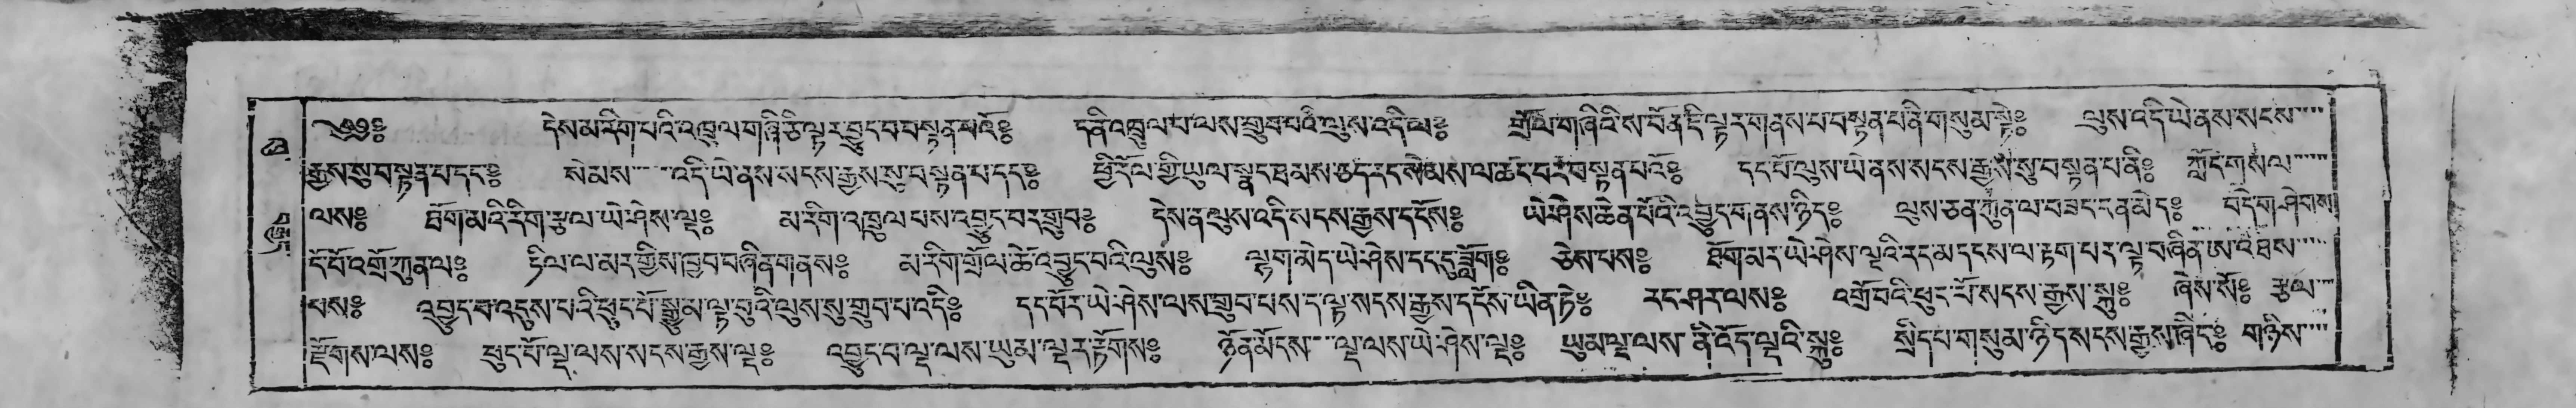 ༄༅༔ དེས་མ་རིག་པའི་འཁྲུལ་གཞི་ཅི་ལྟར་བྱུང་བ་བསྟན་པའོ༔ ད་ནི་འཁྲུལ་པ་ལས་གྲུབ་པའི་ལུས་འདི་ལ༔ གྲོལ་གཞིའི་ས་བོན་དེ་ལྟར་གནས་པ་བསྟན་པ་ནི་གསུམ་སྟེ༔ ལུས་འདི་ཡེ་ནས་སངས་
རྒྱས་སུ་བསྟན་པ་དང༔ སེམས་འདི་ཡེ་ནས་སངས་རྒྱས་སུ་བསྟན་པ་དང༔ ཕྱི་རོལ་གྱི་ཡུལ་སྣང་ཐམས་ཅད་རང་སེམས་ལ་ཚང་བར་བསྟན་པའོ༔ དང་པོ་ལུས་ཡེ་ནས་སངས་རྒྱས་སུ་བསྟན་པ་ནི༔ ཀློང་གསལ་
ལས༔ ཐོག་མའི་རིག་རྩལ་ཡེ་ཤེས་ལྔ༔ མ་རིག་འཁྲུལ་པས་འབྱུང་བར་གྲུབ༔ དེས་ན་ལུས་འདི་སངས་རྒྱས་དངོས༔ ཡེ་ཤེས་ཆེན་པོའི་འབྱུང་གནས་ཉིད༔ ལུས་ཅན་ཀུན་ལ་བཟང་ངན་མེད༔ བདེ་གཤེགས་
ངོ་བོ་འགྲོ་ཀུན་ལ༔ ཏིལ་ལ་མར་གྱིས་ཁྱབ་བཞིན་གནས༔ མ་རིག་གྲོལ་ཚེ་འབྱུང་བའི་ལུས༔ ལྷག་མེད་ཡེ་ཤེས་དང་དུ་ཟློག༔ ཅེས་པས༔ ཐོག་མར་ཡེ་ཤེས་ལྔའི་རང་མདངས་ལ་རྟག་པར་ལྟ་བཞིན་ཨ་འཐས་
པས༔ འབྱུང་བ་འདུས་པའི་ཕུང་པོ་སྒྱུ་མ་ལྟ་བུའི་ལུས་སུ་གྲུབ་པ་འདི༔ དང་པོར་ཡེ་ཤེས་ལས་གྲུབ་པས་ད་ལྟ་སངས་རྒྱས་དངོས་ཡིན་ཏེ༔ རང་ཤར་ལས༔ འགྲོ་བའི་ཕུང་པོ་སངས་རྒྱས་སྐུ༔ ཞེས་སོ༔ རྩལ་
རྫོགས་ལས༔ ཕུང་པོ་ལྔ་ལས་སངས་རྒྱས་ལྔ༔ འབྱུང་བ་ལྔ་ལས་ཡུམ་ལྔར་རྟོགས༔ ཉོན་མོངས་ལྔ་ལས་ཡེ་ཤེས་ལྔ༔ ཡུམ་ལྔ་ལས་ནི་འོད་ལྔའི་སྐུ༔ སྲིད་པ་གསུམ་ཉིད་སངས་རྒྱས་ཞིང༔ གཉིས་